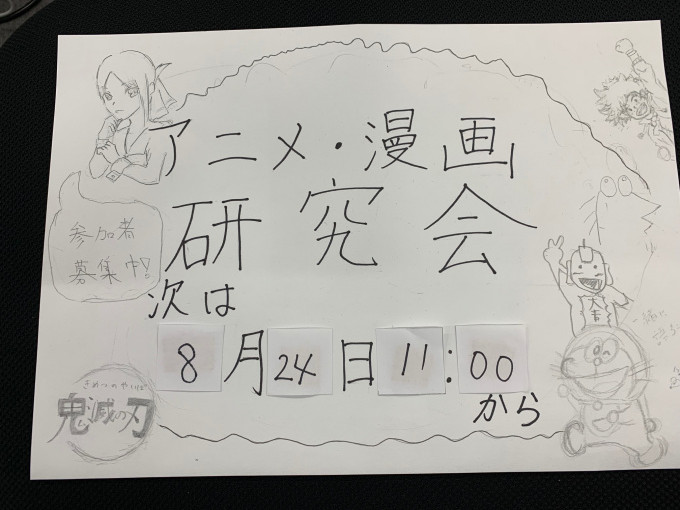 アニメ・漫画
研究会
参加者
募集中!
次は
8月24日11:00
から
きめつのやいば
鬼滅の刃
大吉